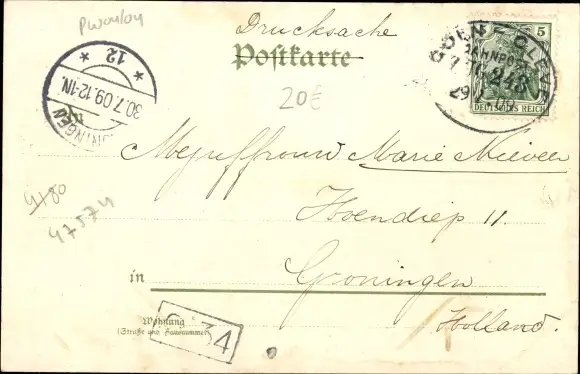 Pwoyloy
Drucksache
Postkarte
5
DEUTSCHES REICH
CLEVE
BAHNPOST
243
12
30.7.09.12-1N.
NINGEN
20€
Mejuffrouw Marie Meiveen
4/80
47574
Hoendiep 11.
in Groningen
Holland.
Wohnung
(Straße und Hausnummer)
34